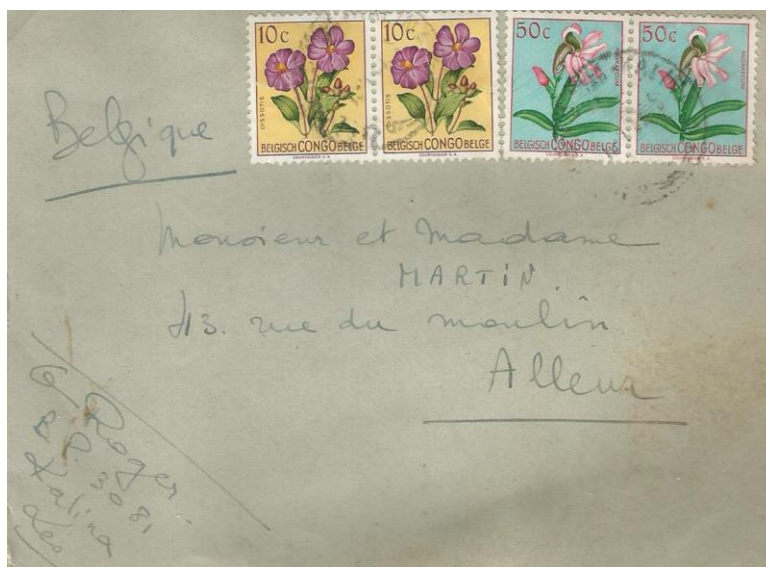 10c 10c 50c 50c
DISSOTIS
BELGISCH CONGO BELGE BELGISCH CONGO BELGE BELGISCH CONGO BELGE BELGISCH CONGO BELGE
Belgique
Monsieur et Madame
MARTIN.
43. rue du moulin
Alleur
Roger
B.P. 3081
Kalina
Léo